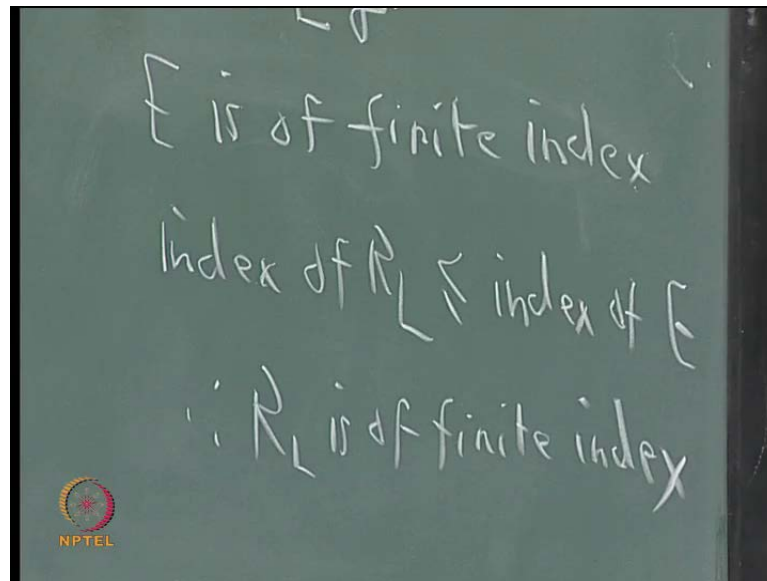 E is of finite index
index of R_L ≤ index of E
∴ R_L is of finite index
NPTEL